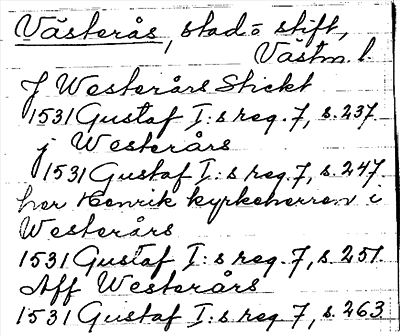 Västerås, stad o stift,
Västm. l.
J Westerårs Stickt
1531 Gustaf I:s reg. 7, s. 237
j Westerårs
1531 Gustaf I:s reg. 7, s. 247
her Henrik kyrkeherren i
Westerårs
1531 Gustaf I:s reg. 7, s. 251
Aff Westerårs
1531 Gustaf I:s reg. 7, s. 263